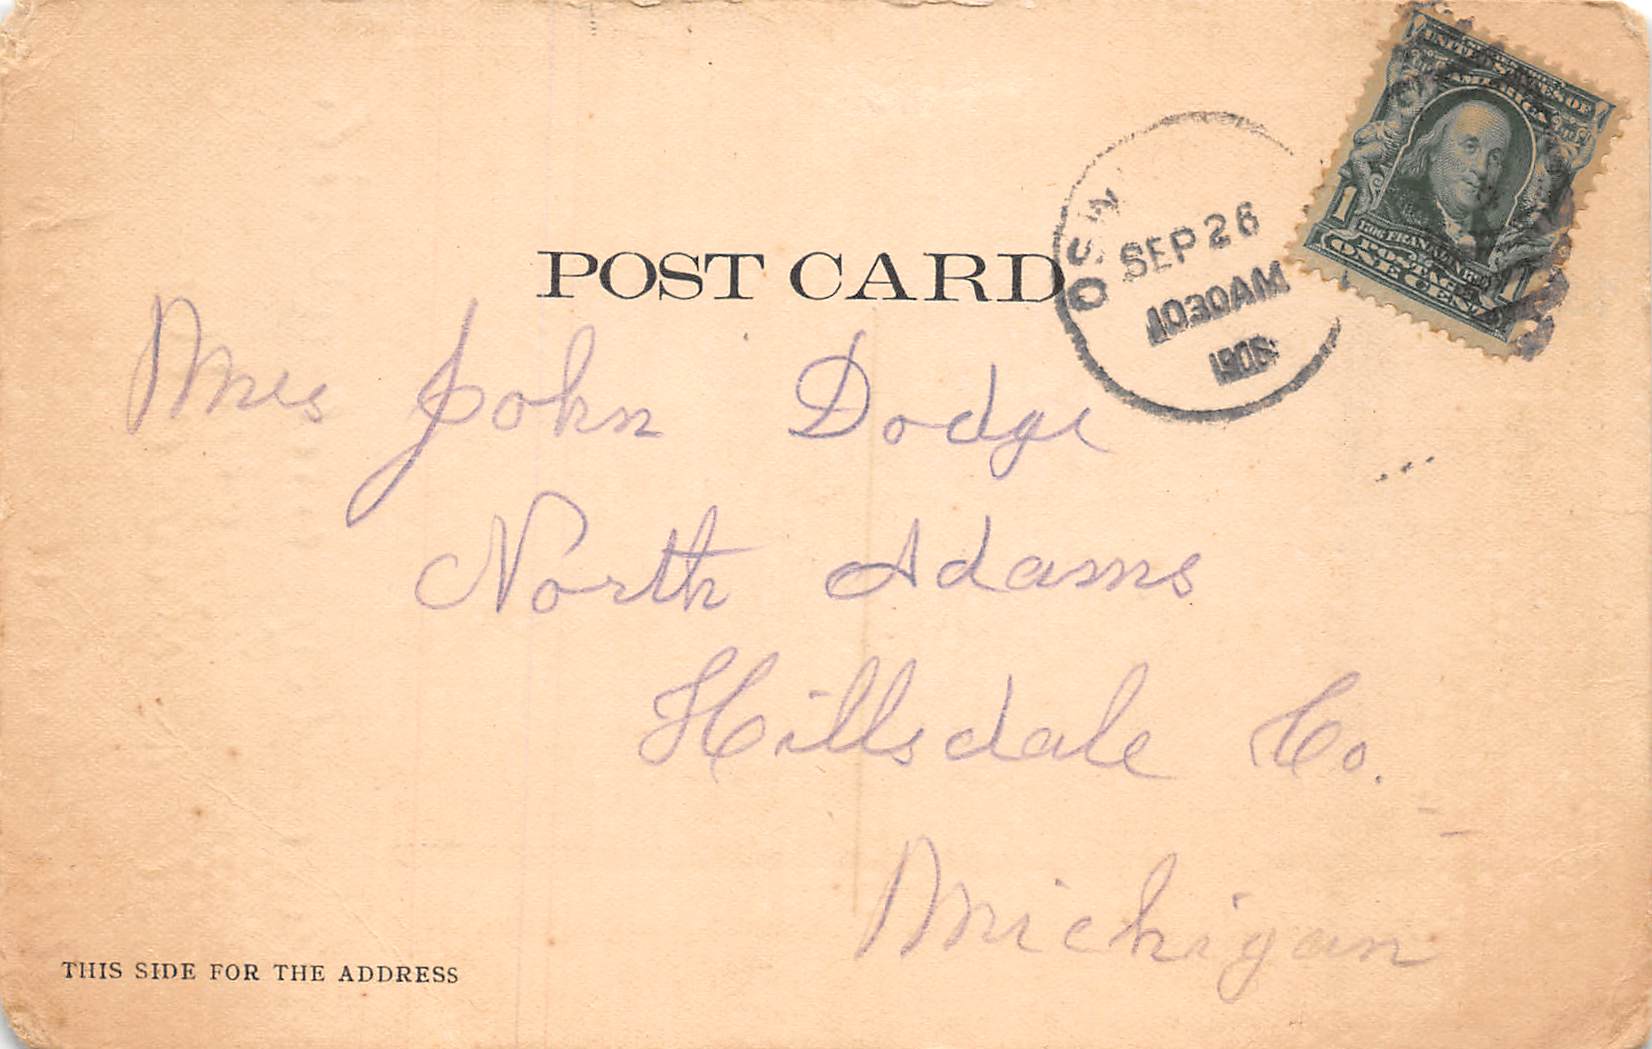 UNITED STATES OF AMERICA
1706 FRANKLIN 1790
POSTAGE
1 ONE CENT 1
OSW
SEP 26
1030AM
POST CARD
Mrs John Dodge
North Adams
Hillsdale Co.
Michigan
THIS SIDE FOR THE ADDRESS